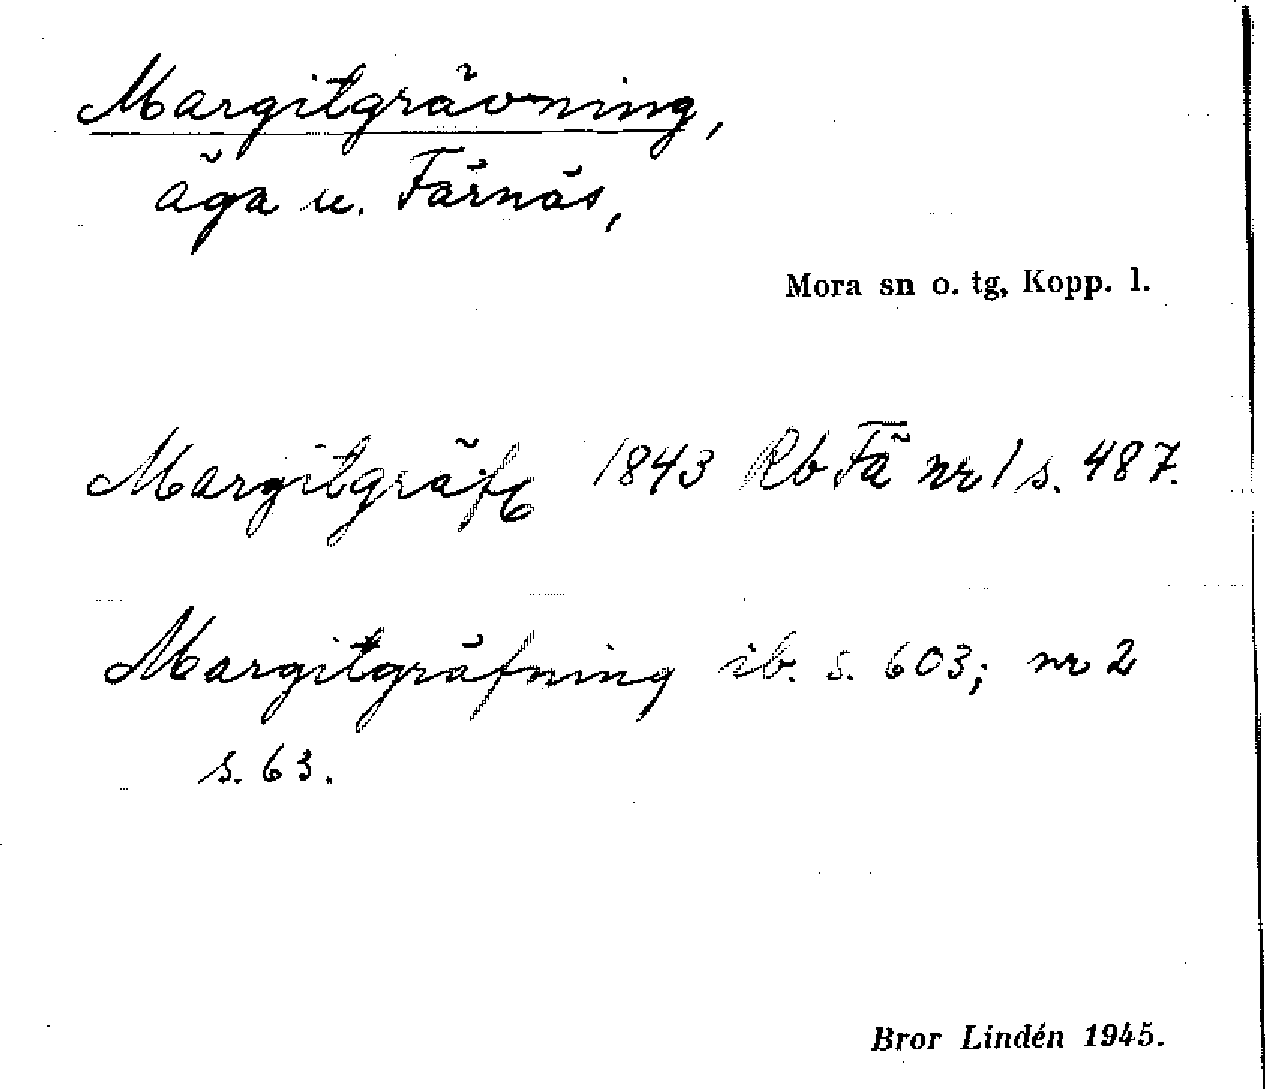 Margitgrävning,
äga u. Färnäs,
Mora sn o. tg, Kopp. l.
Margitgräfg 1843 Rb Fä nr 1 s. 487.
Margitgräfning ib. s. 603; nr 2
s. 63.
Bror Lindén 1945.